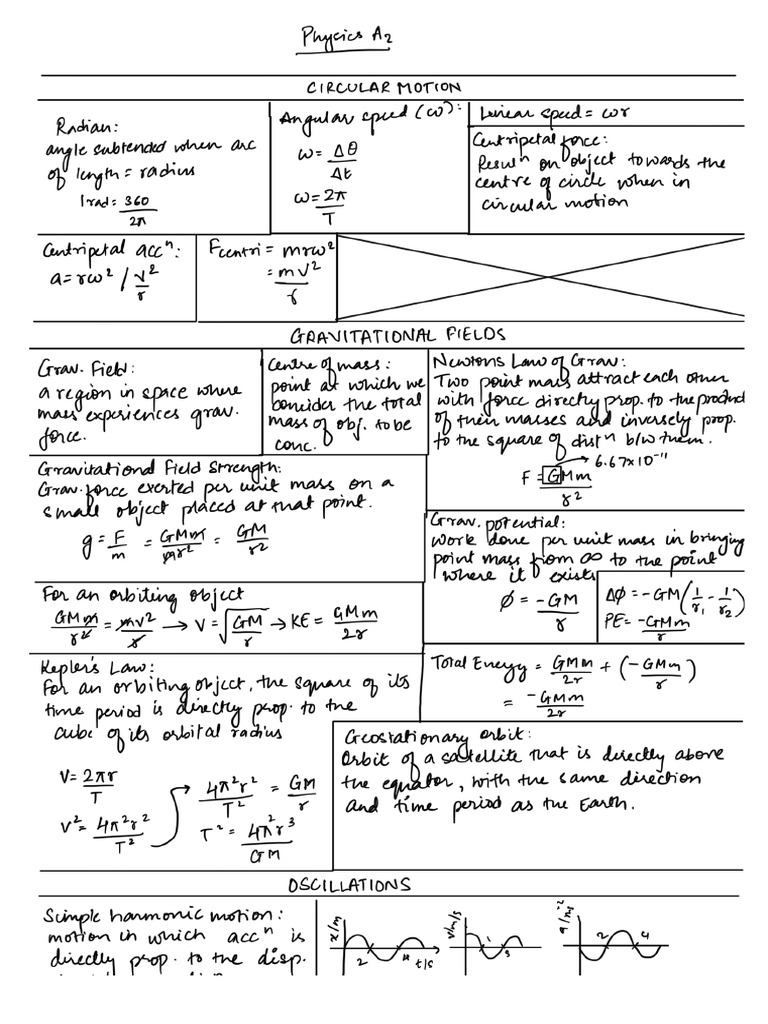 Physics A2
CIRCULAR MOTION
Radian:
angle subtended when arc
of length = radius
1 rad = 360
2π
Angular speed (ω):
ω = Δθ
Δt
ω = 2π
T
Linear speed = ωr
Centripetal force:
Resulⁿ on object towards the
centre of circle when in
circular motion
Centripetal accⁿ:
a = rω² / v²
r
Fcentri = mrω²
= mv²
r
GRAVITATIONAL FIELDS
Grav. Field:
a region in space where
mass experiences grav.
force.
Centre of mass:
point at which we
consider the total
mass of obj. to be
conc.
Newtons Law of Grav:
Two point mass attract each other
with force directly prop. to the product
of their masses and inversely prop.
to the square of distⁿ b/w them.
6.67×10⁻¹¹
F = GMm
r²
Gravitational Field Strength:
Grav. force exerted per unit mass on a
small object placed at that point.
g = F = GMm = GM
m mr² r²
Grav. potential:
Work done per unit mass in bringing
point mass from ∞ to the point
where it exists
ϕ = -GM
r
Δϕ = -GM(1/r₁ - 1/r₂)
PE = -GMm
r
For an orbiting object
GMm = mv² → V = √GM → KE = GMm
r² r r 2r
Kepler's Law:
For an orbiting object, the square of its
time period is directly prop. to the
cube of its orbital radius
V = 2πr
T
V² = 4π²r²
T²
4π²r² = GM
T² r
T² = 4π²r³
GM
Total Energy = GMm + (-GMm)
2r r
= -GMm
2r
Geostationary orbit:
Orbit of a satellite that is directly above
the equator, with the same direction
and time period as the Earth.
OSCILLATIONS
Simple harmonic motion:
motion in which accⁿ is
directly prop. to the disp.
x/m
2
t/s
v/m/s
1
3
2
4